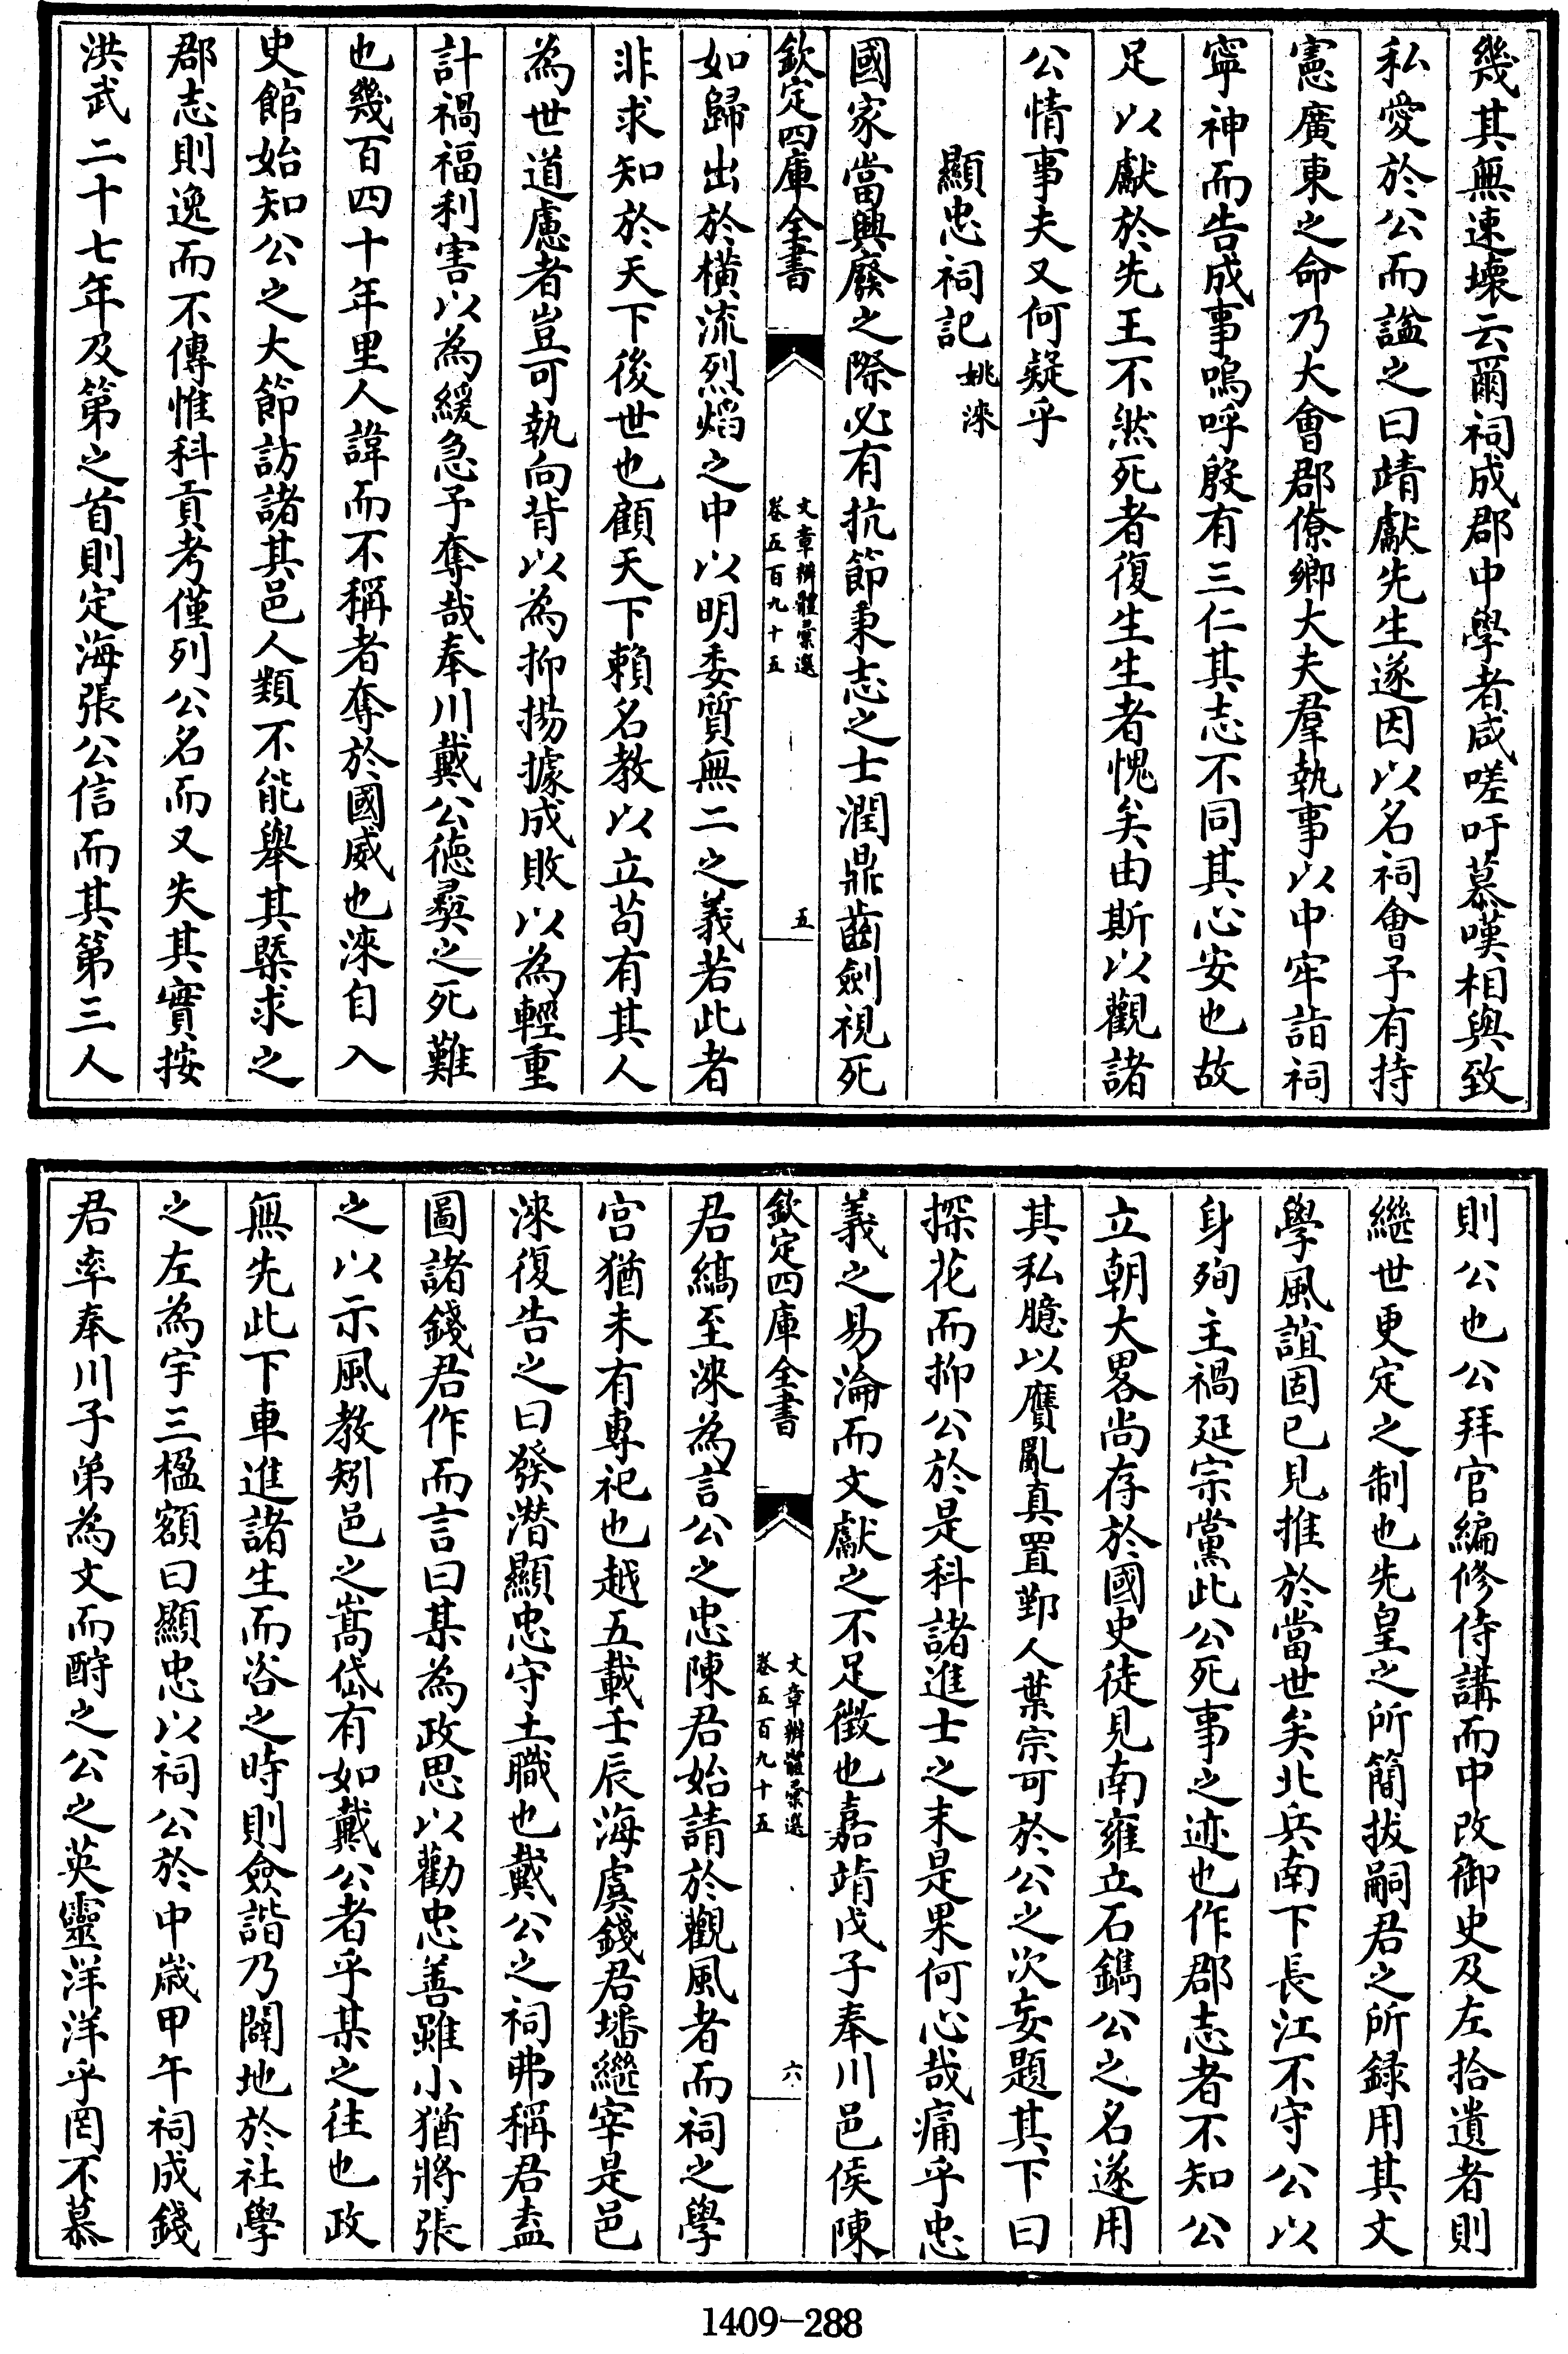 幾其無速壞云爾祠成郡中學者咸嗟吁慕嘆相與致
私愛於公而諡之曰靖獻先生遂因以名祠會予有持
憲廣東之命乃大會郡僚鄉大夫羣執事以中牢詣祠
寧神而告成事嗚呼殷有三仁其志不同其心安也故
足以獻於先王不然死者復生生者愧矣由斯以觀諸
公情事夫又何疑乎
顯忠祠記 姚淶
國家當興廢之際必有抗節秉志之士潤鼎齒劍視死
欽定四庫全書
文章辨體彙選
卷五百九十五
五
如歸出於橫流烈焰之中以明委質無二之義若此者
非求知於天下後世也顧天下賴名教以立苟有其人
為世道慮者豈可執向背以為抑揚據成敗以為輕重
計禍福利害以為緩急予奪哉奉川戴公德彞之死難
也幾百四十年里人諱而不稱者奪於國威也淶自入
史館始知公之大節訪諸其邑人類不能舉其槩求之
郡志則逸而不傳惟科貢考僅列公名而又失其實按
洪武二十七年及第之首則定海張公信而其第三人
則公也公拜官編修侍講而中改御史及左拾遺者則
繼世更定之制也先皇之所簡拔嗣君之所錄用其文
學風誼固已見推於當世矣北兵南下長江不守公以
身殉主禍延宗黨此公死事之迹也作郡志者不知公
立朝大畧尚存於國史徒見南雍立石鐫公之名遂用
其私臆以贋亂真置鄞人葉宗可於公之次妄題其下曰
探花而抑公於是科諸進士之末是果何心哉痛乎忠
義之易淪而文獻之不足徵也嘉靖戊子奉川邑侯陳
欽定四庫全書
文章辨體彙選
卷五百九十五
六
君縞至淶為言公之忠陳君始請於觀風者而祠之學
宮猶未有專祀也越五載壬辰海虞錢君璠繼宰是邑
淶復告之曰發潛顯忠守土職也戴公之祠弗稱君盍
圖諸錢君作而言曰某為政思以勸忠善雖小猶將張
之以示風教矧邑之嵩岱有如戴公者乎某之往也政
無先此下車進諸生而咨之時則僉諧乃闢地於社學
之左為宇三楹額曰顯忠以祠公於中歲甲午祠成錢
君率奉川子弟為文而酹之公之英靈洋洋乎罔不慕
1409-288